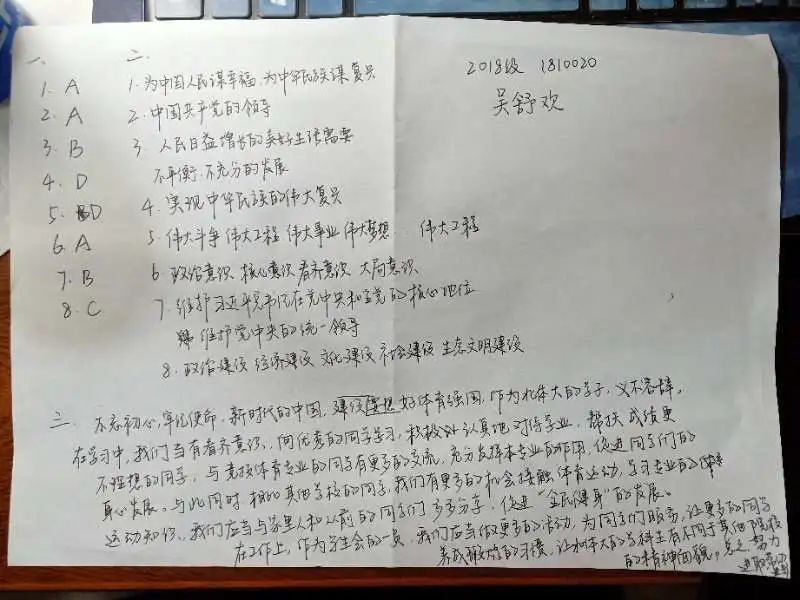 一、
1. A
2. A
3. B
4. D
5. D
6. A
7. B
8. C
二.
1. 为中国人民谋幸福,为中华民族谋复兴
2. 中国共产党的领导
3. 人民日益增长的美好生活需要
不平衡.不充分的发展
4. 实现中华民族的伟大复兴
5. 伟大斗争 伟大工程 伟大事业 伟大梦想 伟大工程
6. 政治意识 核心意识 看齐意识 大局意识
7. 维护习近平总书记在党中央和全党的核心地位
维护党中央的统一领导
8. 政治建设 经济建设 文化建设 社会建设 生态文明建设
2018级 1810020
吴舒欢
三、不忘初心,牢记使命,新时代的中国,建设体育强国,作为北体大的学子,义不容辞。
在学习中,我们当有看齐意识,向优秀的同学学习,积极认真地对待学业,帮扶成绩更
不理想的同学,与竞技体育专业的同学有更多的交流,充分发挥本专业的作用,促进同学们的
身心发展。与此同时,相比其他学校的同学,我们有更多的机会接触体育运动,学习专业的
运动知识,我们应当与家里人和以前的同学们多多分享,促进“全民健身”的发展。
在工作上,作为学生会的一员,我们应当做更多的活动,为同学们服务,让更多的同学
养成锻炼的习惯,让北体大的学生有不同于其他院校
的精神面貌。总之,努力